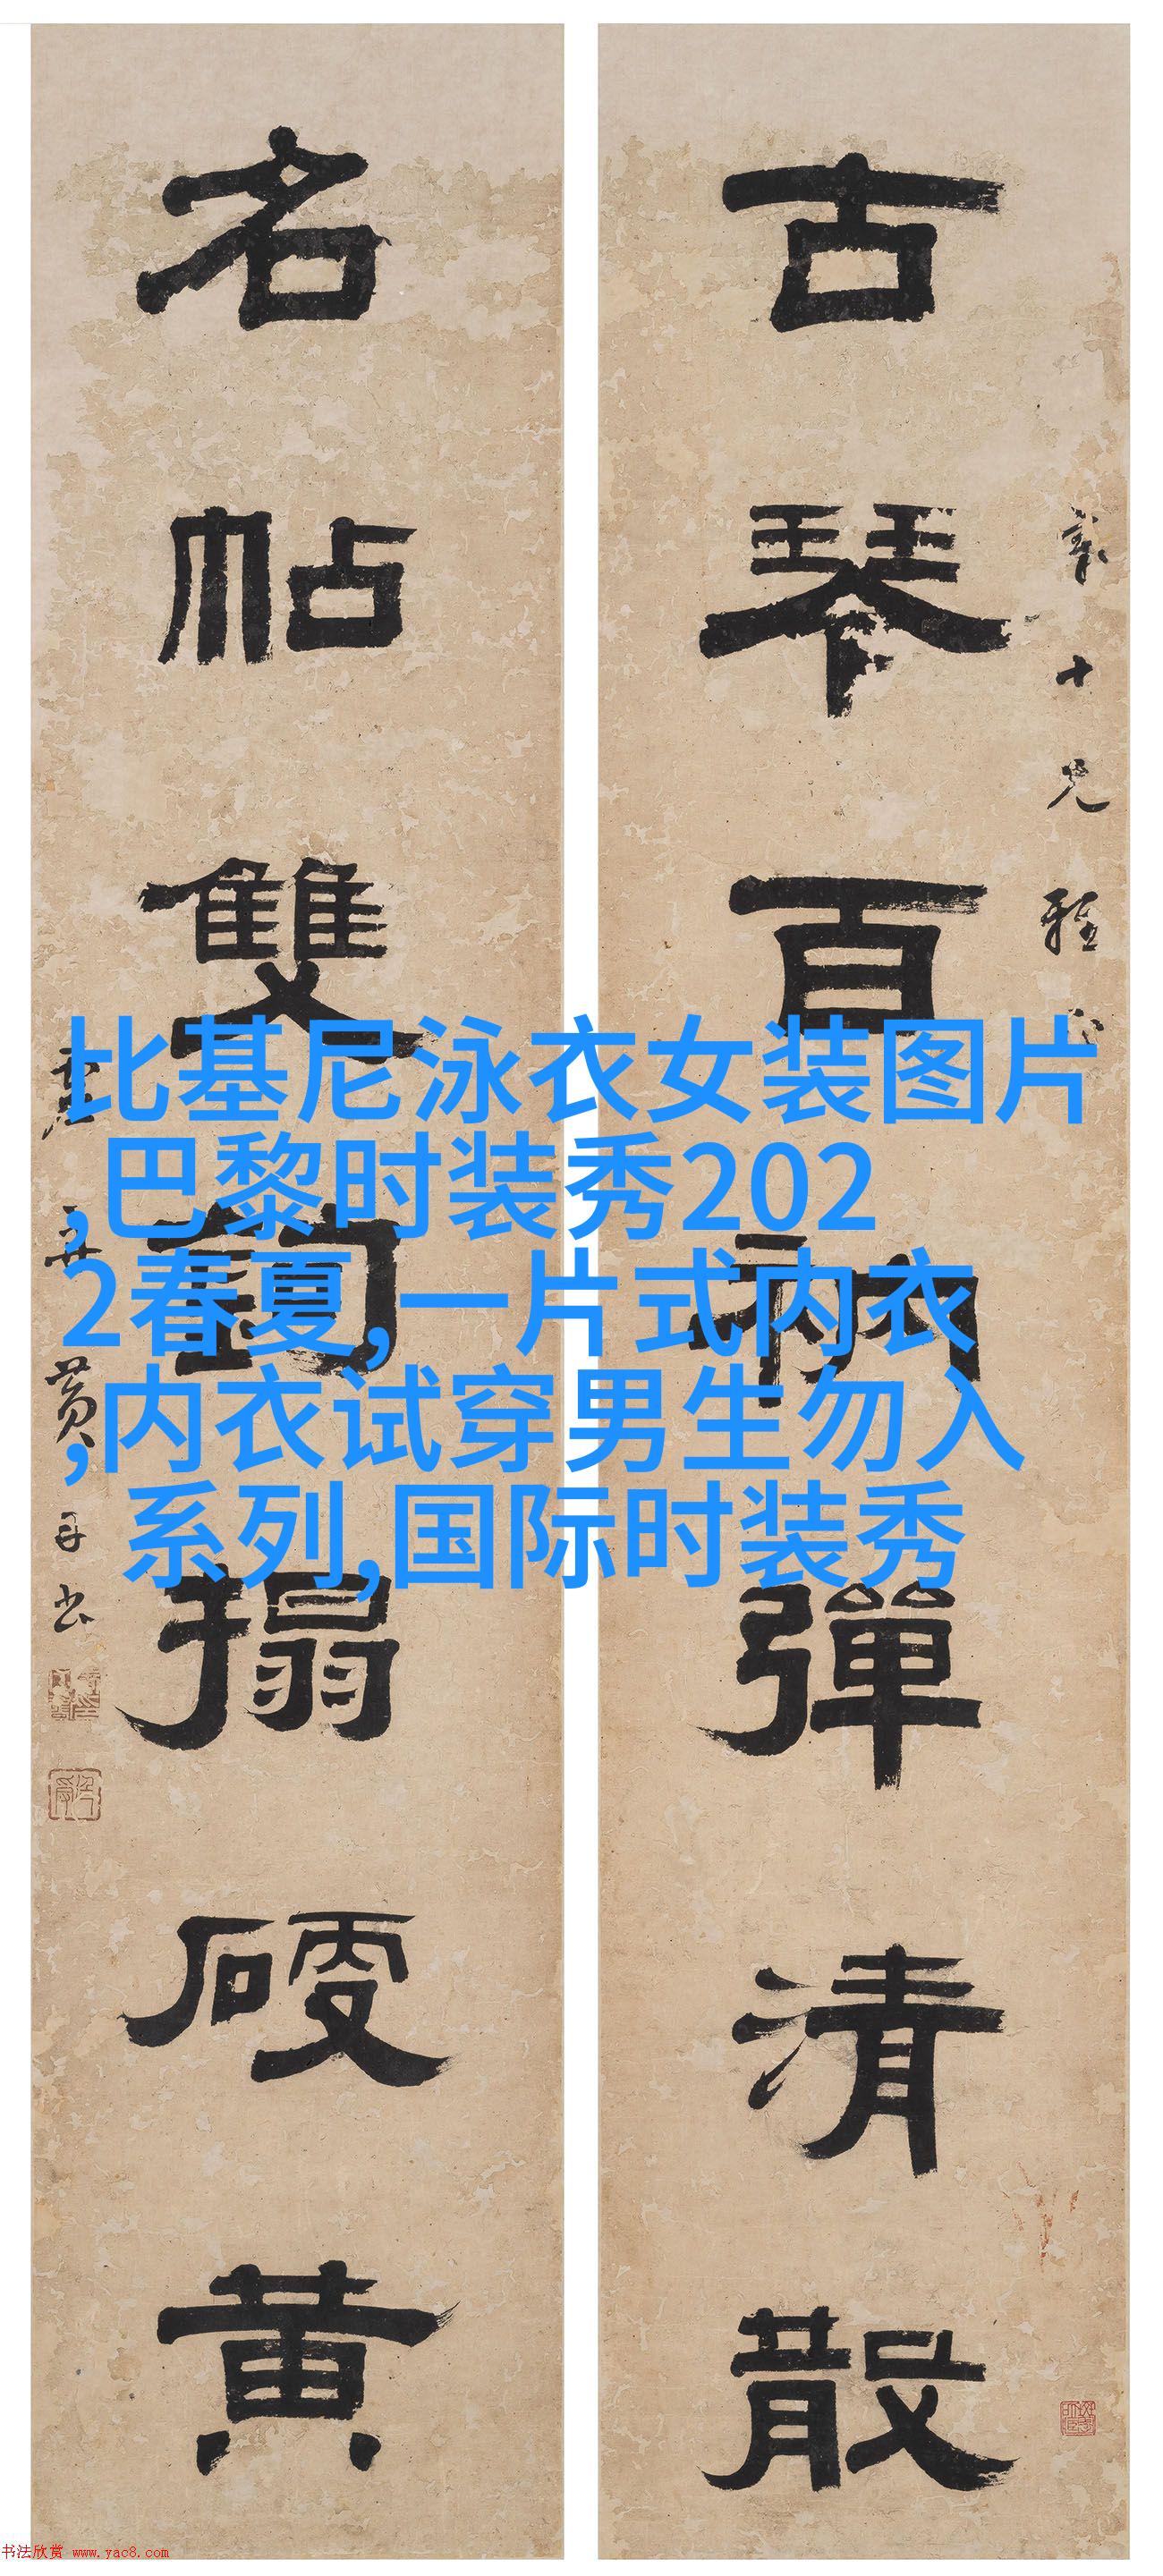 古琴百衲彈清散
十兄雅
名帖雙鉤搨硬黄
比基尼泳衣女装图片
,巴黎时装秀202
2春夏,一片式内衣
,内衣试穿男生勿入
系列,国际时装秀
书法欣赏 www.yac8.com